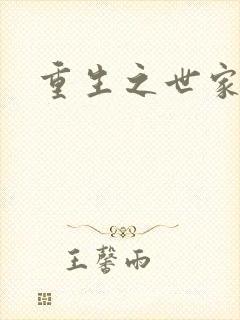 重生之世家
王馨雨